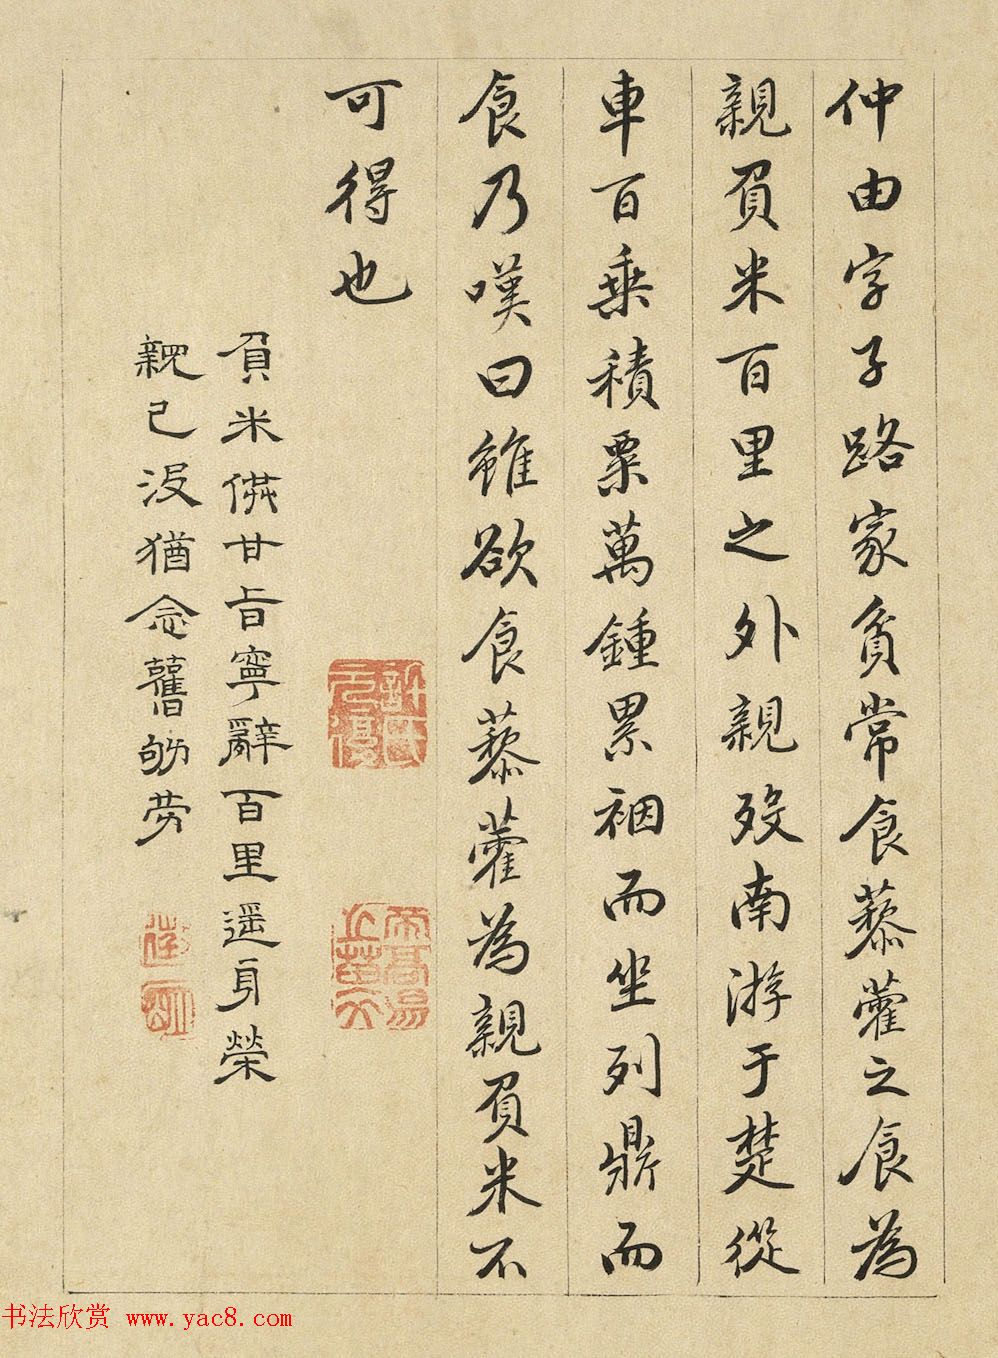 仲由字子路家貧常食藜藿之食為
親負米百里之外親歿南游于楚從
車百乗積粟萬鍾累裀而坐列鼎而
食乃嘆曰雖欲食藜藿為親負米不
可得也
負米供甘旨寧辭百里遥身榮
親已没猶念舊劬劳
书法欣赏 www.yac8.com